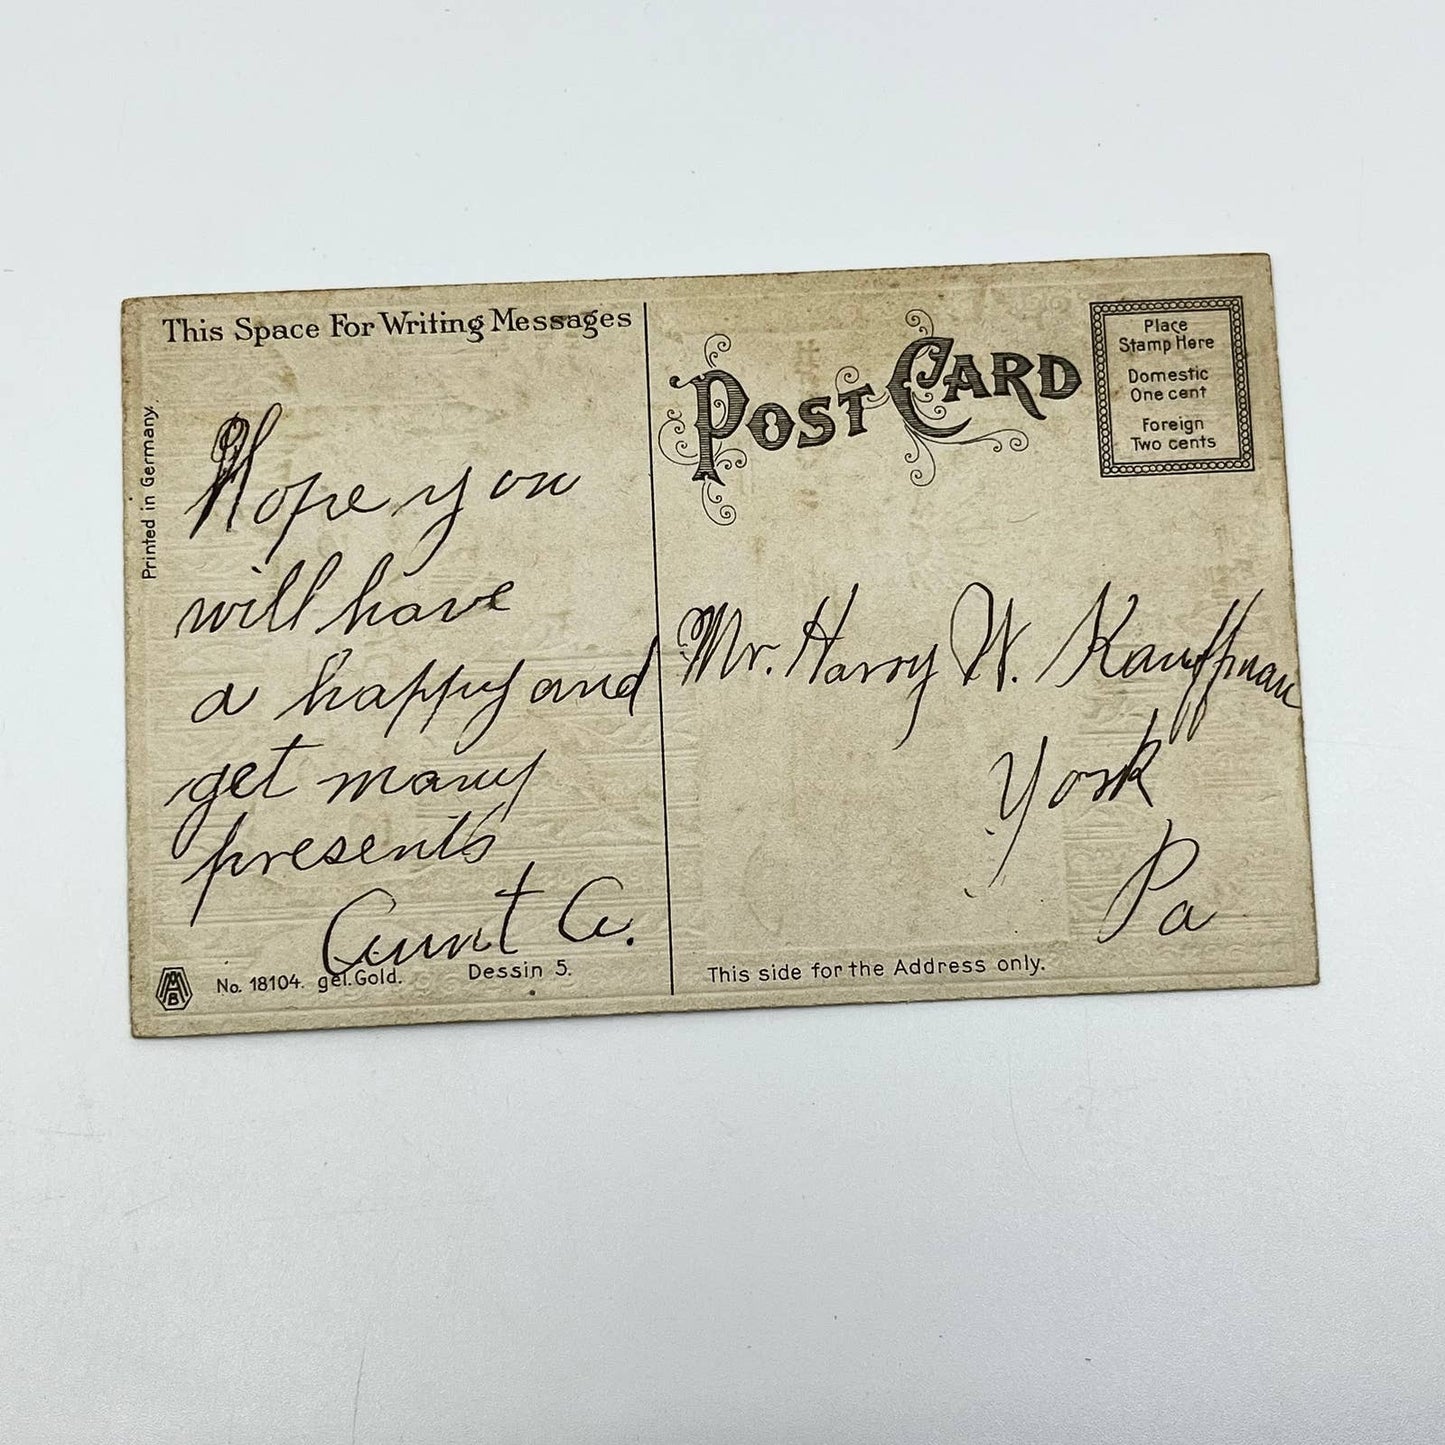 This Space For Writing Messages
Printed in Germany.
Hope you
will have
a happy and
get many
presents
Aunt C.
No. 18104. gel. Gold. Dessin 5.
POST CARD
Place
Stamp Here
Domestic
One cent
Foreign
Two cents
Mr. Harry W. Kauffman
York
Pa
This side for the Address only.